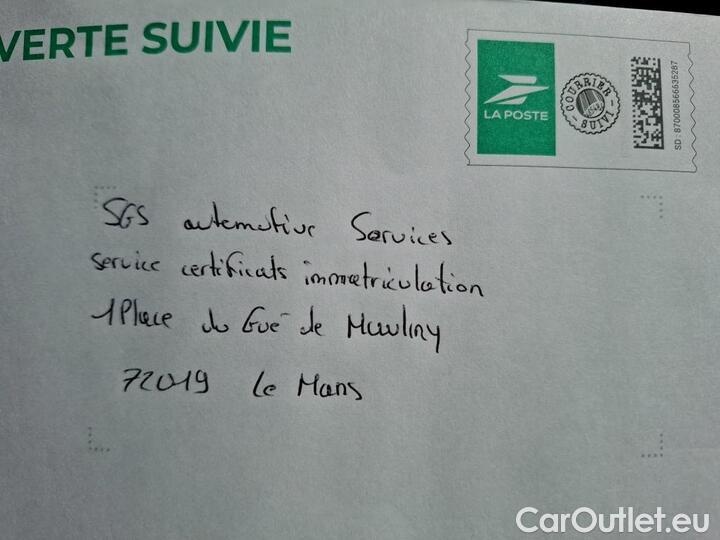 VERTE SUIVIE
LA POSTE
COURRIER SUIVI
SD : 87000856663S287
SGS automotive Services
service certificats immatriculation
1 Place du Gué de Mauliny
72019 Le Mans
CarOutlet.eu